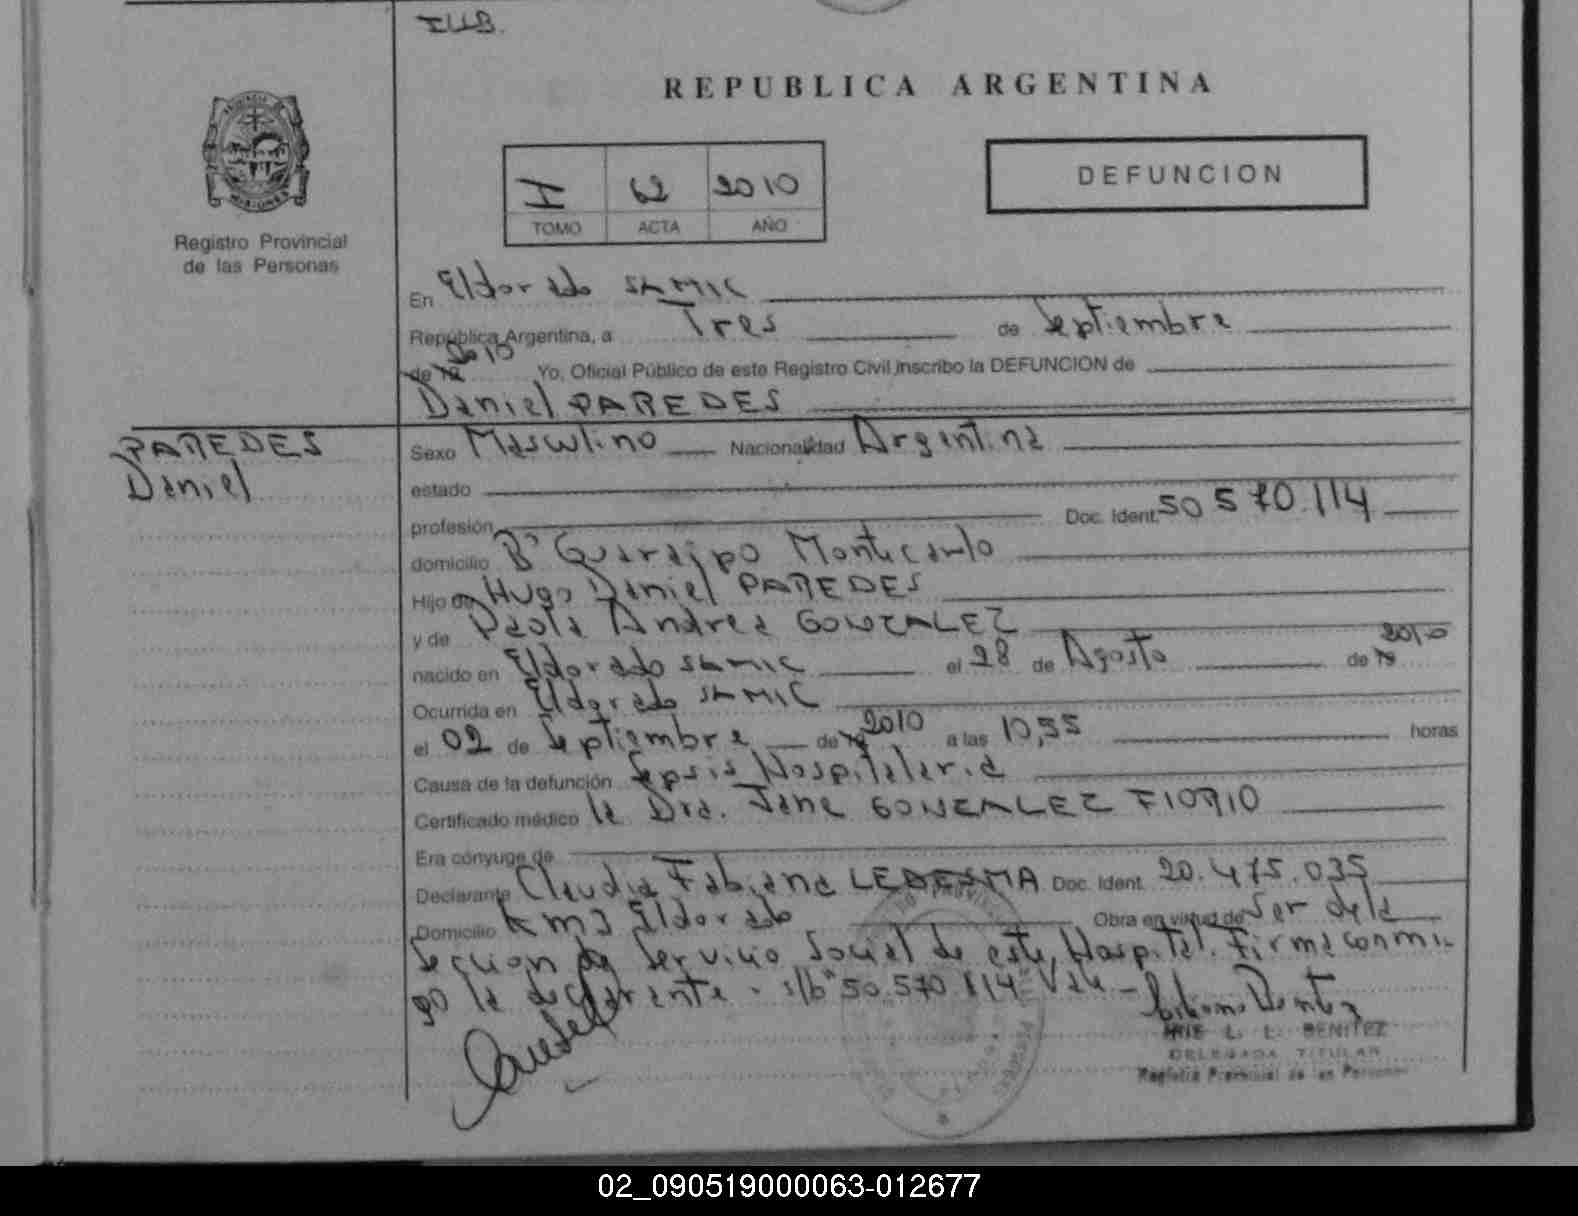 REPUBLICA ARGENTINA
I 62 2010
TOMO ACTA AÑO
DEFUNCION
Registro Provincial
de las Personas
En Eldorado SAMIC
República Argentina, a Tres de Septiembre
de 19 2010 Yo, Oficial Público de este Registro Civil inscribo la DEFUNCION de
Daniel PAREDES
PAREDES
Daniel
Sexo Masculino Nacionalidad Argentina
estado
profesión Doc. Ident. 50 570.114
domicilio B° Guaraipo Montecarlo
Hijo de Hugo Daniel PAREDES
y de Paola Andrea GONZALEZ
nacido en Eldorado SAMIC el 28 de Agosto de 19 2010
Ocurrida en Eldorado SAMIC
el 02 de Septiembre de 19 2010 a las 10,55 horas
Causa de la defunción Sepsis Hospitalaria
Certificado médico la Dra. Jane GONZALEZ FIORIO
Era cónyuge de
Declarante Claudia Fabiana LEDESMA Doc. Ident. 20.475.035
Domicilio Km 3 Eldorado Obra en virtud de Ser de la
Seccion de Servicio Social de este Hospital. Firma conmi
go la declarante. s/b "50.570.114" Vale
L. L. BENITEZ
DELEGADA TITULAR
Registro Provincial de las Personas
02_090519000063-012677